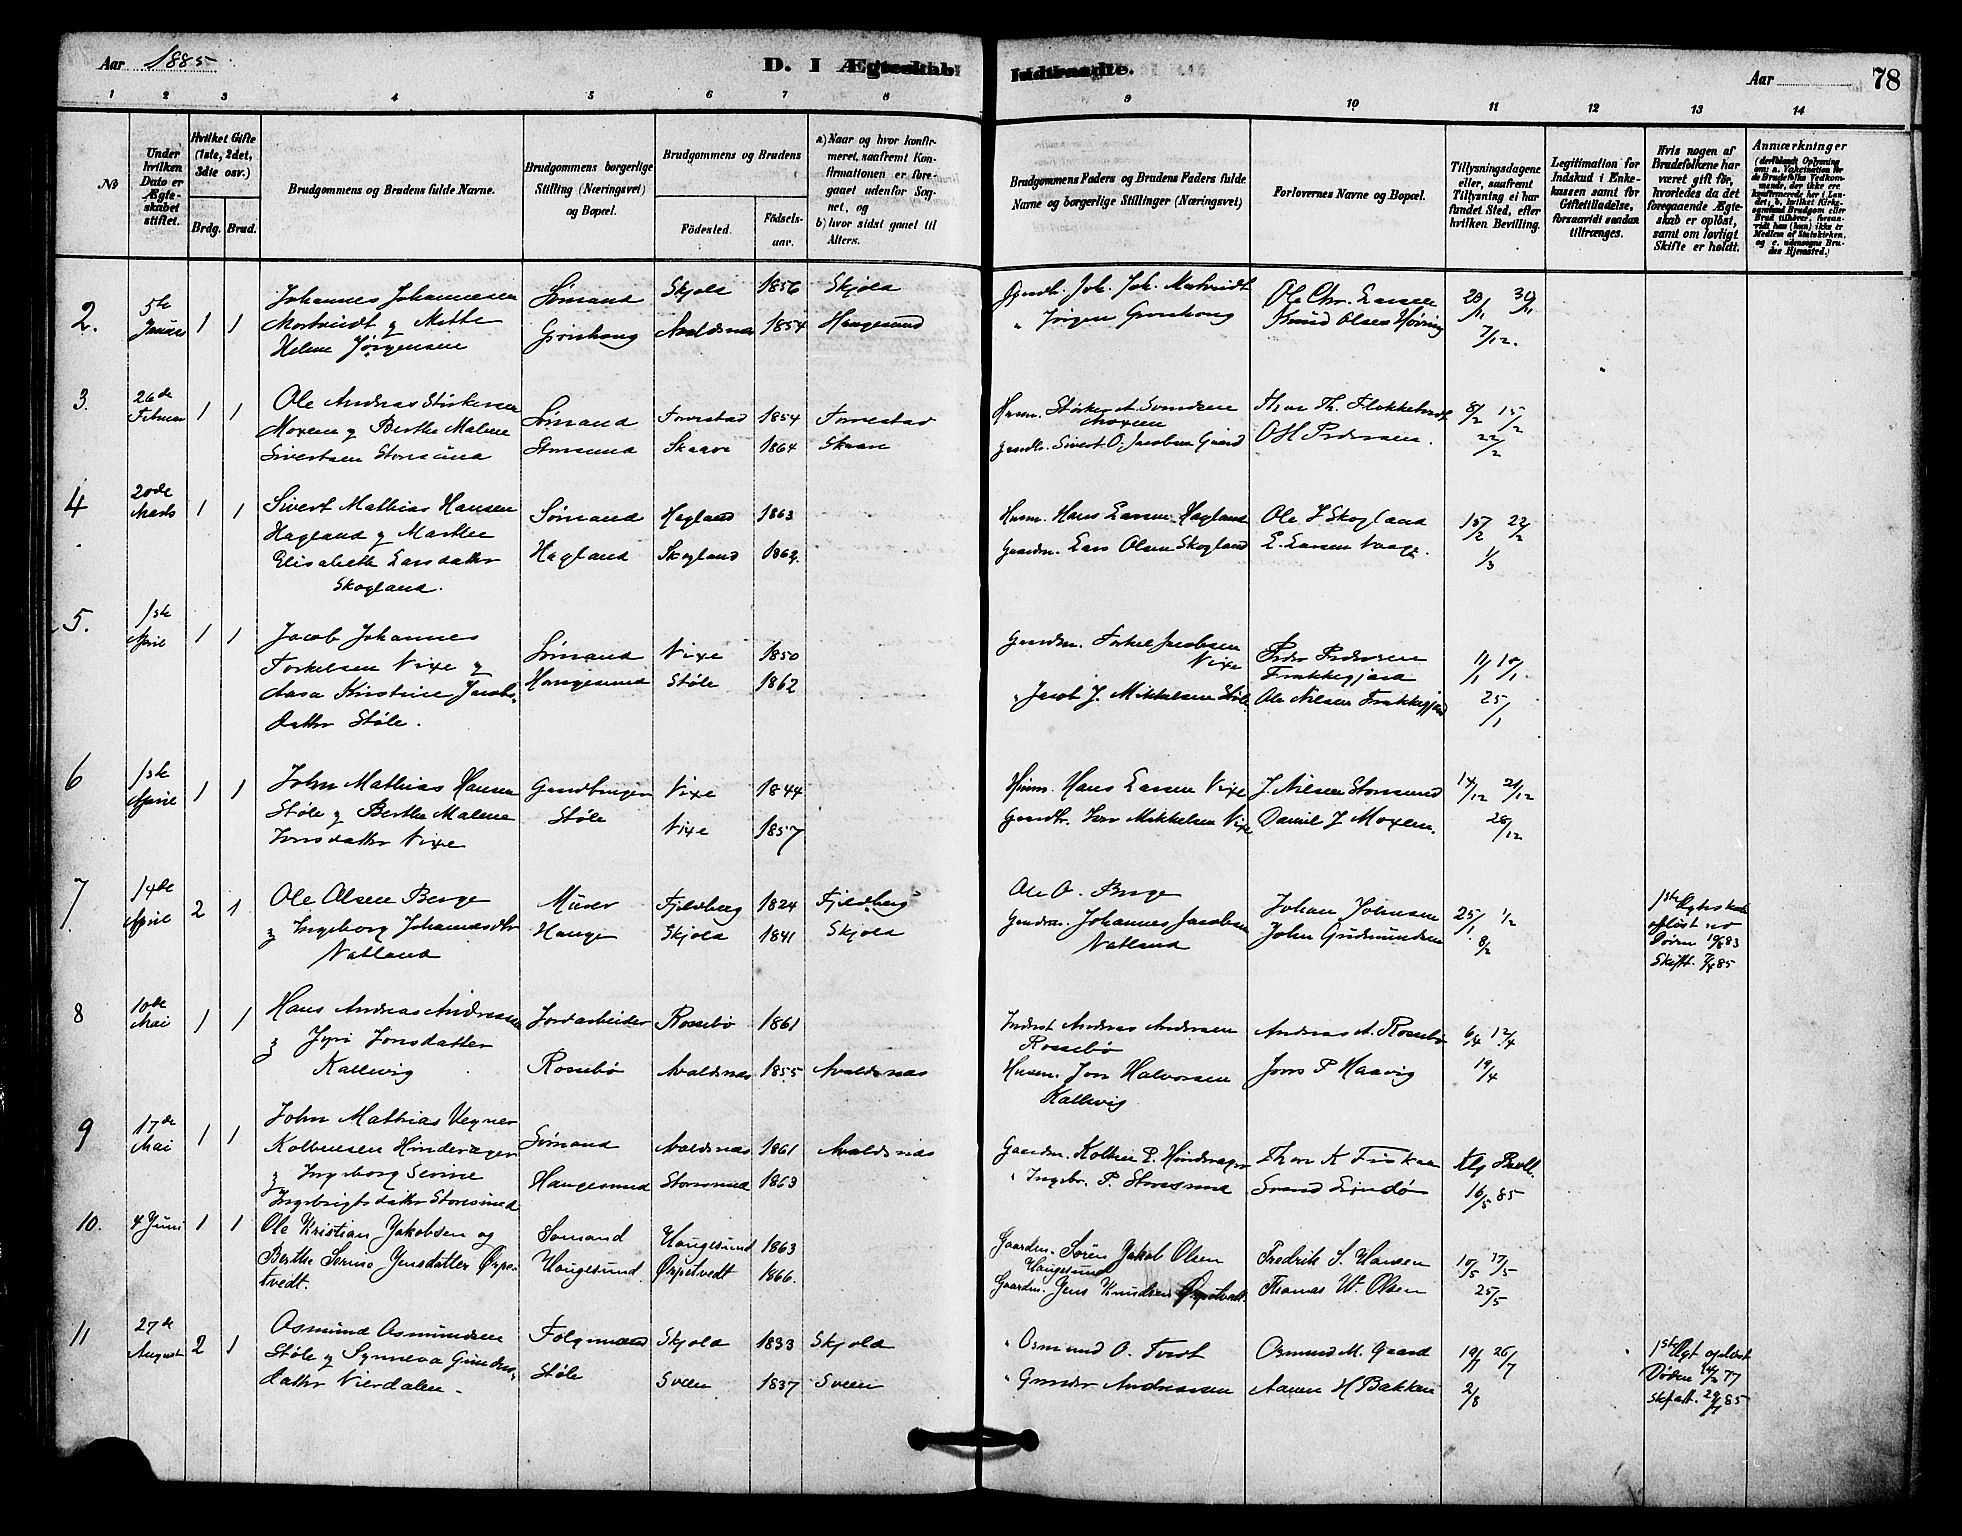 Aar 1885
D. I Ægteskab
Indtraadte.
Aar
78
1 2 3 4 5 6 7 8 9 10 11 12 13 14
No
Under hvilken Dato er Ægteskabet stiftet.
Hvilket Gifte (1ste, 2det, 3die osv.)
Brdg. Brud.
Brudgommens og Brudens fulde Navne.
Brudgommens borgerlige Stilling (Næringsvei) og Bopæl.
Brudgommens og Brudens
Fødested.
Fødselsaar.
a) Naar og hvor konfirmeret, saafremt Konfirmationen er foregaaet udenfor Sognet, og
b) hvor sidst gaaet til Alters.
Brudgommens Faders og Brudens Faders fulde Navne og borgerlige Stillinger (Næringsvei)
Forlovernes Navne og Bopæl.
Tillysningsdagene eller, saafremt Tillysning ei har fundet Sted, efter hvilken Bevilling.
Legitimation for Indskud i Enkekassen samt for Giftetilladelse, forsaavidt saadan tiltrænges.
Hvis nogen af Brudefolkene har været gift før, hvorledes da det foregaaende Ægteskab er opløst, samt om lovligt Skifte er holdt.
Anmærkninger
2. 5te Januar 1 1
Johannes Johannesen
og Mette
Helene Jørgensen
Sømand
Grønhoug
Skjold 1856 Skjold
Avaldsnes 1854 Haugesund
Gaardb. Joh. Joh.
" Jørgen Grønhoug
Ole Chr. Larsen
Knud Olsen
23/11 30/11
7/12.
3. 26de Februar 1 1
Ole Andreas Størkersen
Moxein og Berthe Malene
Sivertsen Storesund
Sømand
Storesund
Torvestad 1854 Torvestad
Skaare 1864 Skaare
Husm. Størker A. Svendsen
Moxein
Gaardb. Sivert O. Jacobsen Gaard
Thor Th.
O H Pedersen.
8/2 15/2
22/2
4 20de Marts 1 1
Sivert Mathias Hansen
Hagland og Marthe
Elisabeth Larsdatter
Skogland.
Sømand
Hagland
Hagland 1863
Skogland 1862.
Husm. Hans Larsen Hagland
Gaardm. Lars Olsen Skogland
Ole J Skogland
L. Larsen Vaage.
15/2 22/2
1/3
5. 1ste April 1 1
Jacob Johannes
Torkelsen Vixe og
Aasa Kristine Jacobs
datter Støle.
Sømand
Haugesund
Vixe 1850
Støle 1862
Gaardm. Torkel Jacobsen
Vixe
" Jacob J. Mikkelsen Støle
Peder Pedersen
Frakkagjerd
Ole Nilsen Frakkagjerd
11/1 18/1.
25/1
6 1ste April 1 1
John Mathias Hansen
Støle og Berthe Malene
Jonsdatter Vixe
Gaardbruger
Støle
Vixe 1844
Vixe 1857
Husm. Hans Larsen Vixe
Gaardb. Jon Mikkelsen Vixe
J. Nilsen Storesund
Daniel J Moxein.
14/12 21/12
28/12
7 14de April 2 1
Ole Olsen Berge
og Ingeborg Johannesdtr
Natland
Murer
Hauge
Fjeldberg 1824 Fjeldberg
Skjold 1841 Skjold
Ole O. Berge
Gaardm. Johannes Jacobsen
Natland
Johan Johnsen
John Gudmundsen
25/1. 1/2
8/2
1ste Ægteskab
opløst ved
Døden 10/6 83
Skift. 7/4 85
8 10de Mai 1 1
Hans Andreas Andreassen
og Jyri Jonsdatter
Kallevig
Jordarbeider
Rossebø
Rossebø 1861
Avaldsnes 1855 Avaldsnes
Inderst Andreas Andersen
Rossebø
Husm. Jon Halvorsen
Kallevig
Andreas A. Rossebø
Jons P Haavig
6/4 12/4
19/4
9 17de Mai 1 1
John Mathias Vegner
Kolbensen Hinderager
og Ingeborg Serine
Ingebrigtsdatter Storesund
Sømand
Haugesund
Avaldsnes 1861 Avaldsnes
Storesund 1863
Gaardm. Kolben P. Hinderager
" Ingebr. P. Storesund
Thor K
Svend Lindø
Klg Bevll.
16/5 85
10. 4 Juni 1 1
Ole Kristian Jakobsen og
Berthe Serine Jensdatter Ørpetvedt.
Sømand
Haugesund.
Haugesund 1863
Ørpetvedt 1866.
Gaardm. Søren Jakob Olsen
Haugesund
Gaardm. Jens Knudsen Ørpetvedt.
Fredrik S. Hansen
Thomas W. Olsen
10/5 17/5
25/5
11 27de August 2 1
Osmund Osmundsen
Støle og Synneva Gunders
datter Vierdalen.
Folgemand
Støle
Skjold 1833 Skjold
Sveen 1837 Sveen
" Osmund O. Tvedt
" Gunder Andreassen
Osmund M. Gaard
Aanen H Bakken
19/7 26/7
2/8
1ste Ægt opløst
Døden 77
85